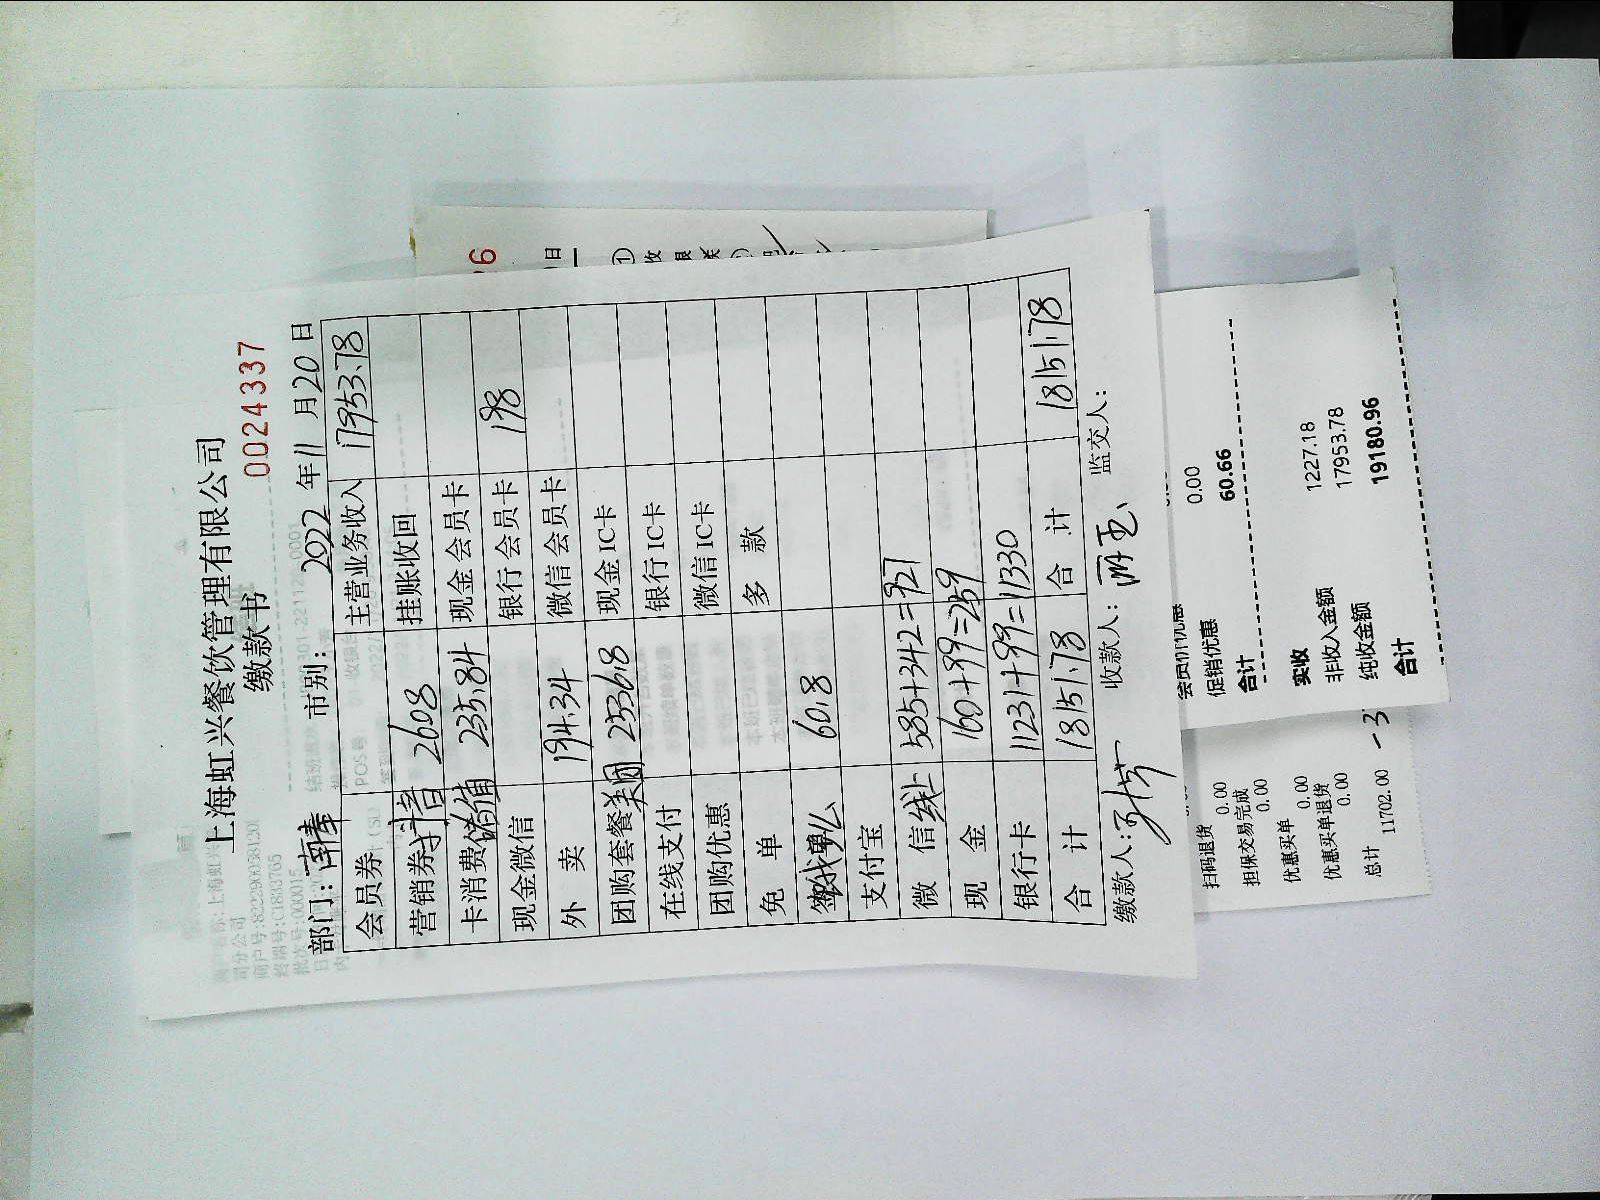 上海虹兴餐饮管理有限公司
缴款书 0024337
部门: 市别: 2022 年 11 月 20 日
会员券 主营业务收入 17953.78
营销券 抖音 2608 挂账收回
卡消费 储值 235.84 现金会员卡
现金微信 银行会员卡 198
外 卖 194.34 微信会员卡
团购套餐 美团 2556.8 现金IC卡
在线支付 银行IC卡
团购优惠 微信IC卡
免 单 多 款
60.8
支付宝
微 信 585+342=927
现 金 160+99=259
银行卡 11231+99=11330
合 计 18151.78 合 计 18151.78
缴款人: 收款人: 监交人:
0.00
促销优惠 60.66
合计
实收
非收入金额 1227.18
纯收金额 17953.78
合计 19180.96
扫码退货 0.00
担保交易完成 0.00
优惠买单 0.00
优惠买单退货 0.00
总计 11702.00